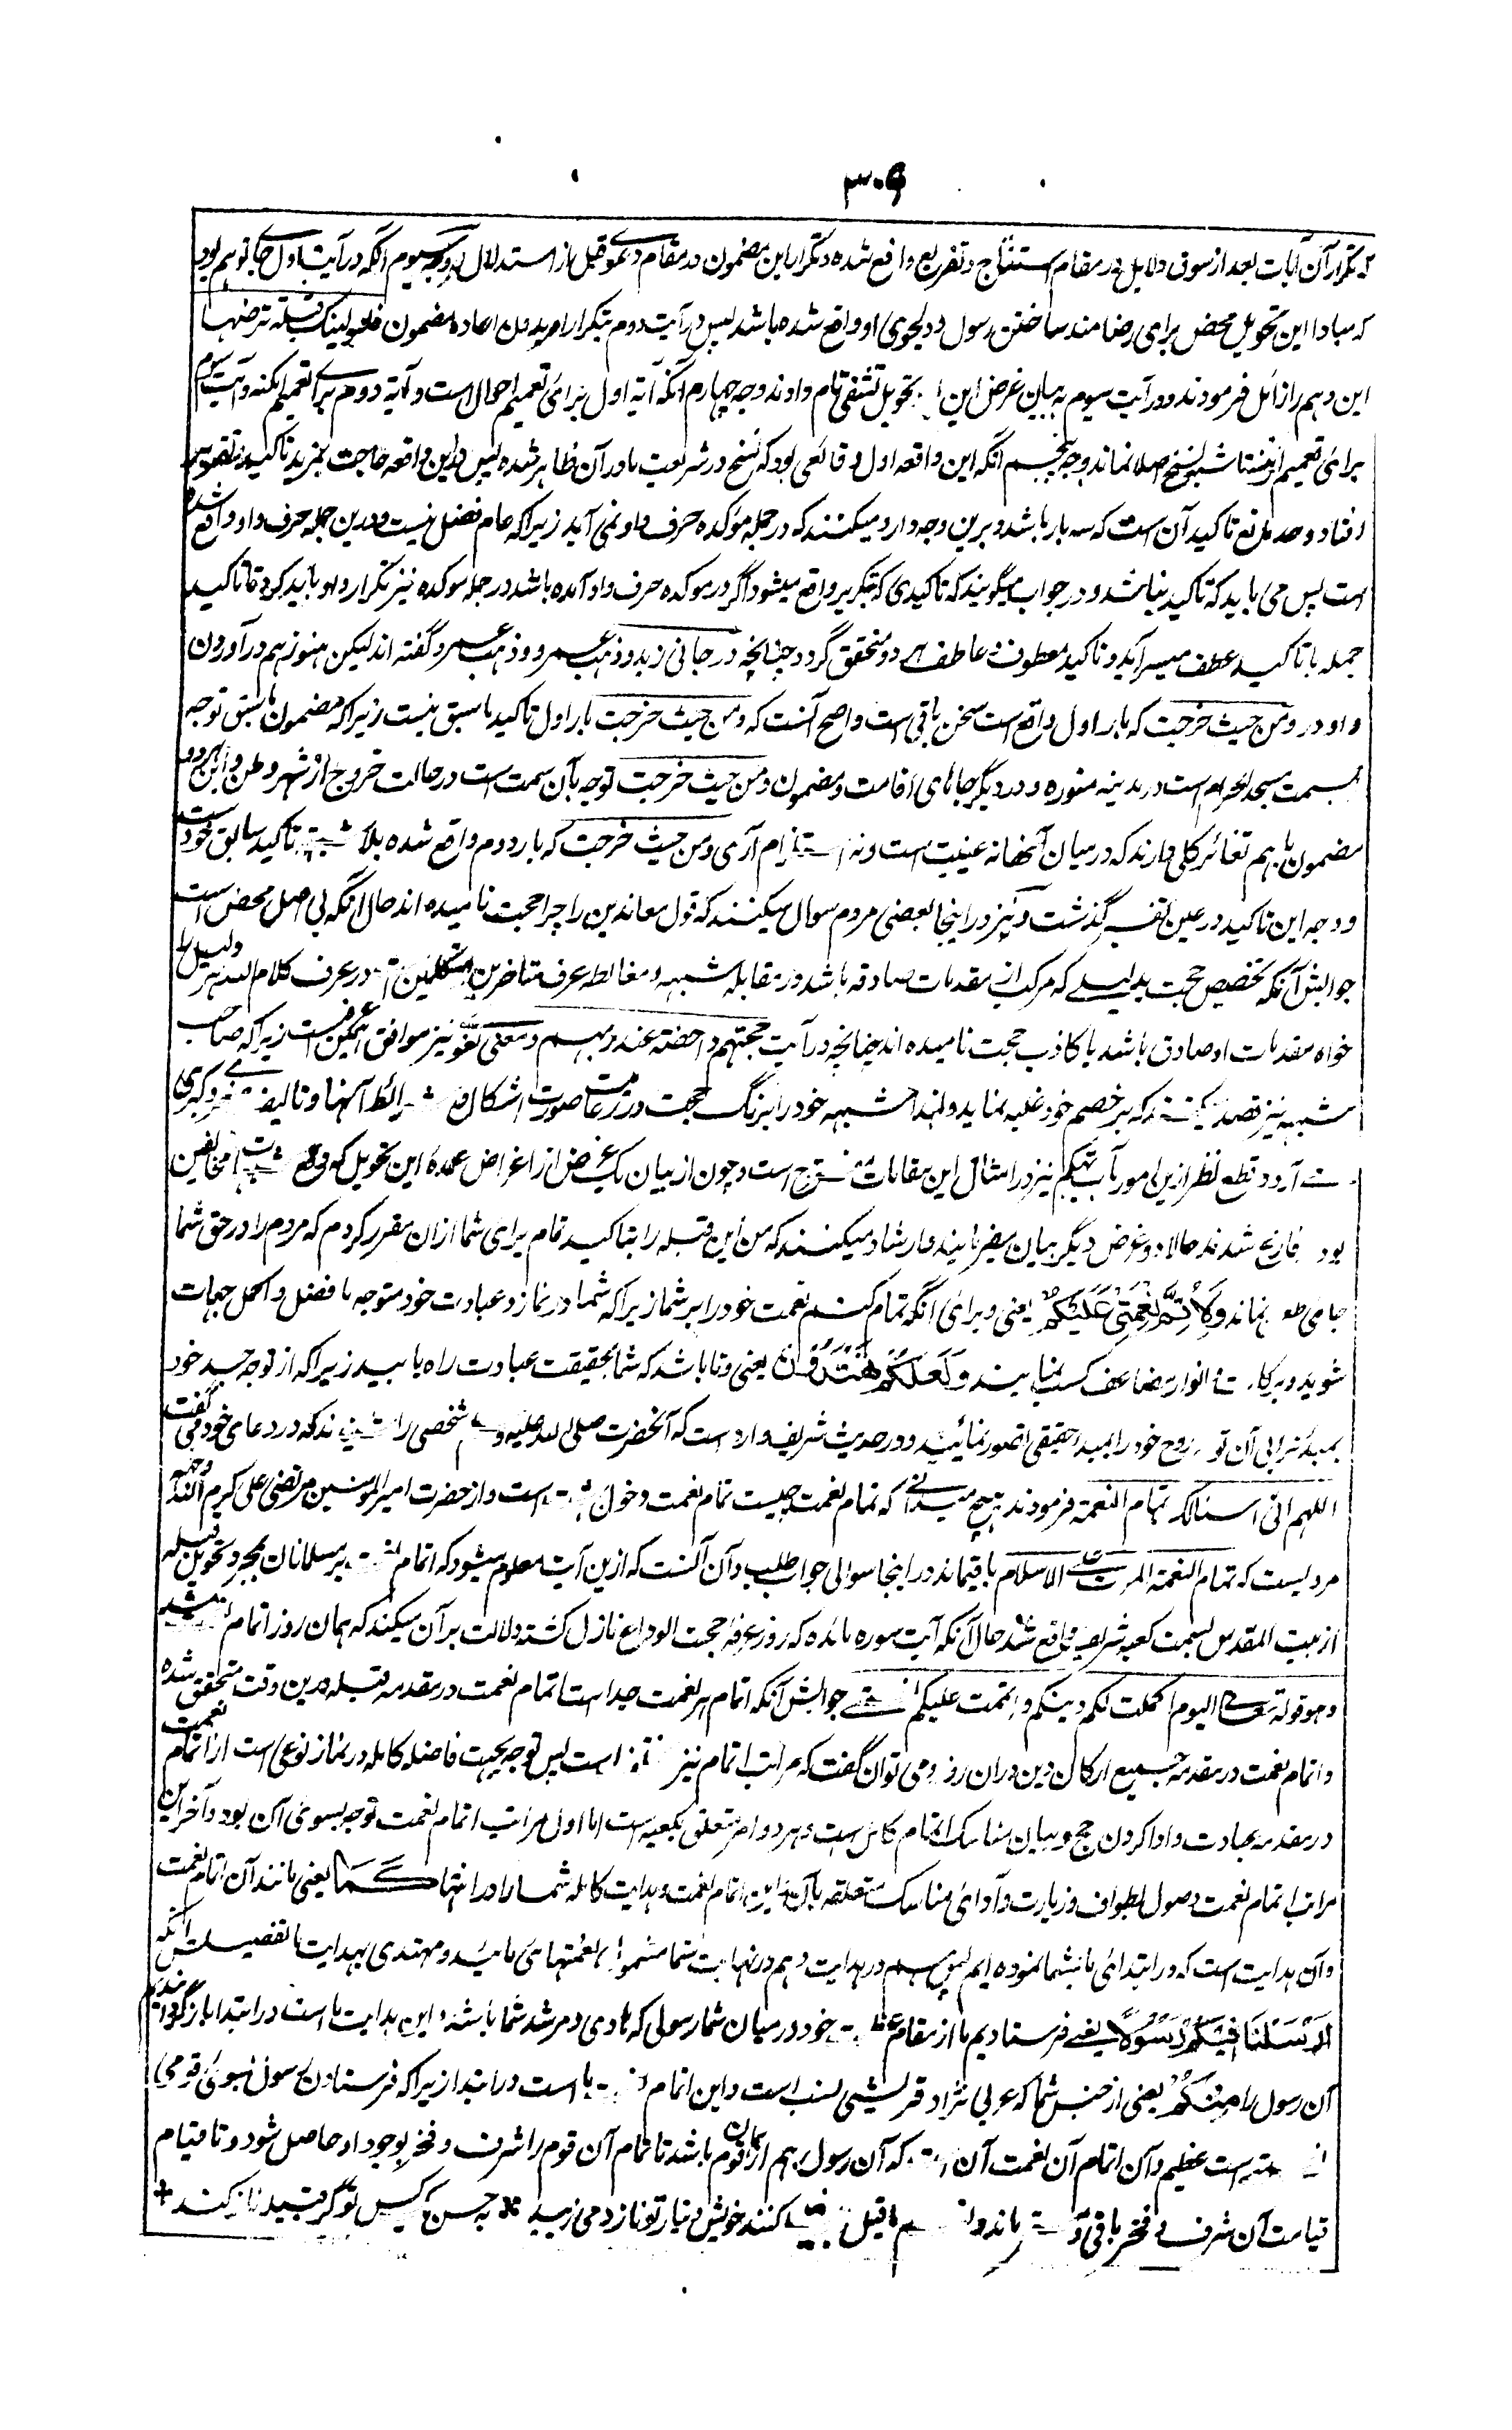 ۳۰۹
که تکرار آن آیات بعد از سوق دلایل در مقام استنتاج و تفریع واقع شده و تکرار این مضمون در مقام دعوی قبل از استدلال بود وجه سیوم آنکه در آیت اول جای توهم بود
که مبادا این تحویل محض برای رضامند ساختن رسول و دلجوی او واقع شده باشد پس در آیت دوم بتکرار امر بدون اعاده مضمون فلنولینک قبلة ترضها
این وهم را زائل فرمودند و در آیت سیوم به بیان غرض این تحویل تشفی تام دادند وجه چهارم آنکه آیه اول برای تعمیم احوال است و آیه دوم برای تعمیم امکنه و آیت سیوم
برای تعمیم ازمنه تا شبه نسخ اصلا نماند وجه پنجم آنکه این واقعه اول وقائعی بود که نسخ در شریعت ما در آن ظاهر شده پس درین واقعه حاجت بمزید تاکید و تقریر
افتاد و حد تاکید آن است که سه بار باشد و برین وجه وارد میکنند که در جمله مؤکده حرف واو نمی آید زیرا که مقام فصل نیست و درین جمله حرف واو واقع شده
است پس می باید که تاکید نباشد و در جواب میگویند که تاکیدی که بتکریر واقع میشود اگر در موکده حرف واو آمده باشد در جمله موکده نیز تکرار واو باید کرد تا تاکید
جمله با تاکید عطف میسر آید و تاکید معطوف و عاطف هر دو متحقق گردد چنانچه در جانی زید و ذهب عمرو و ذهب عمرو گفته اند لیکن هنوز هم در آوردن
واو در ومن حیث خرجت که بار اول واقع است سخن باقی است و اصح آنست که ومن حیث خرجت بار اول تاکید ما سبق نیست زیرا که مضمون ما سبق توجه
بسمت مسجد الحرام است در مدینه منوره و در دیگر جاهای اقامت و مضمون ومن حیث خرجت توجه بآن سمت است در حالت خروج از شهر و وطن و این هر دو
مضمون باهم تغائر کلی دارند که در میان آنها نه عینیت است و نه استلزام آری ومن حیث خرجت که بار دوم واقع شده بلا شبهه تاکید سابق خود است
و وجه این تاکید در عین تفسیر گذشت و نیز در اینجا بعضی مردم سوال میکنند که قول معاندین را چرا حجت نامیده اند حال آنکه بی اصل محض است
جوابش آنکه تخصیص حجت بدلیلی که مرکب از مقدمات صادقه باشد در مقابله شبهه و مغالطه عرف متاخرین متکلمین است در عرف کلام الله هر دلیل را
خواه مقدمات او صادق باشد یا کاذب حجت نامیده اند چنانچه در آیت حجتهم داحضة عند ربهم و معنی لغوی نیز موافق همین عرف است زیرا که صاحب
شبهه نیز قصد میکند که بر خصم خود غلبه نماید و لهذا شبهه خود را برنگ حجت در رعایت صورت اشکال و شرائط آنها و تالیف صغری و کبری
آرد و قطع نظر ازین امور باب تهکم نیز در امثال این مقامات است و چون از بیان یک غرض از اغراض عمده این تحویل که دفع مخالفین
بود فارغ شدند حالا دو غرض دیگر بیان میفرمایند و ارشاد میکنند که من این قبله را بتاکید تمام برای شما ازان مقرر کردم که مردم را در حق شما
جای طعن نماند وَلِأُتِمَّ نِعْمَتِي عَلَيْكُمْ یعنی و برای آنکه تمام کنم نعمت خود را بر شما زیرا که شما در نماز و عبادت خود متوجه بافضل و اکمل جهات
شوید و انوار مضاعف کسب نمایید وَلَعَلَّكُمْ تَهْتَدُونَ یعنی و تا باشد که شما بحقیقت عبادت راه یابید زیرا که از توجه جسد خود
روح خود را بمبدا حقیقی تصور نمائید و در حدیث شریف وارد است که آنحضرت صلی الله علیه وسلم شخصی را شنیدند که در دعای خود می گفت
اللهم انی اسئلک تمام النعمة فرمودند هیچ میدانی که تمام نعمت چیست تمام نعمت دخول است و از حضرت امیر المومنین مرتضی علی کرم الله وجهه
مرویست که تمام النعمة الموت علی الاسلام باقیماند در اینجا سوالی جواب طلب و آن آنست که ازین آیت معلوم میشود که اتمام نعمت بر مسلمانان بمجرد تحویل قبله
از بیت المقدس بسمت کعبه شریف واقع شد حال آنکه آیت سوره مائده که روز عرفه حجت الوداع نازل گشته دلالت بر آن میکند که همان روز اتمام نعمت شد
و هو قوله تعالی الیوم اکملت لکم دینکم و اتممت علیکم نعمتی جوابش آنکه اتمام هر نعمت جداست اتمام نعمت در مقدمه قبله درین وقت متحقق شده
و اتمام نعمت در مقدمه جمیع ارکان دین دران روز و می توان گفت که مراتب اتمام نیز است پس توجه بجهت فاضله کامله در نماز نوعی است از اتمام نعمت
در مقدمه عبادت و ادا کردن حج و بیان مناسک اتمام کامل است و هر دو امر متعلق بکعبه است اما اول مراتب اتمام نعمت توجه بسوی آن بود و آخر این
مراتب اتمام نعمت وصول بطواف و زیارت و آدای مناسک متعلقه بآن اتمام نعمت و هدایت کامله شما را در انتها كَمَا یعنی مانند آن اتمام نعمت
و آن هدایت است که در ابتدای ما بشما نموده ایم پس هم در بدایت و هم در نهایت شما نعمتهای مایید و مهتدی بهدایت ما تفصیلش آنکه
اَرْسَلْنَا فِيكُمْ رَسُولًا یعنی فرستادیم ما از مقام خود در میان شما رسولی که هادی و مرشد شما باشد و این هدایت ما است در ابتدا باز گردانیدیم
آن رسول را مِنْكُمْ یعنی از جنس شما که عربی نژاد قریشی نسب است و این اتمام ما است در ابتدا زیرا که فرستادن رسول بسوی قومی
است عظیم و آن اتمام آن نعمت آن که آن رسول هم ازان قوم باشد تا تمام آن قوم را شرف و فخر بوجود او حاصل شود و تا قیام
قیامت آن شرف و فخر باقی ماند قیل کنند خویش و تبار تو ناز و می زیبد * به حسن یکس تو گر قبیله ناز کند +